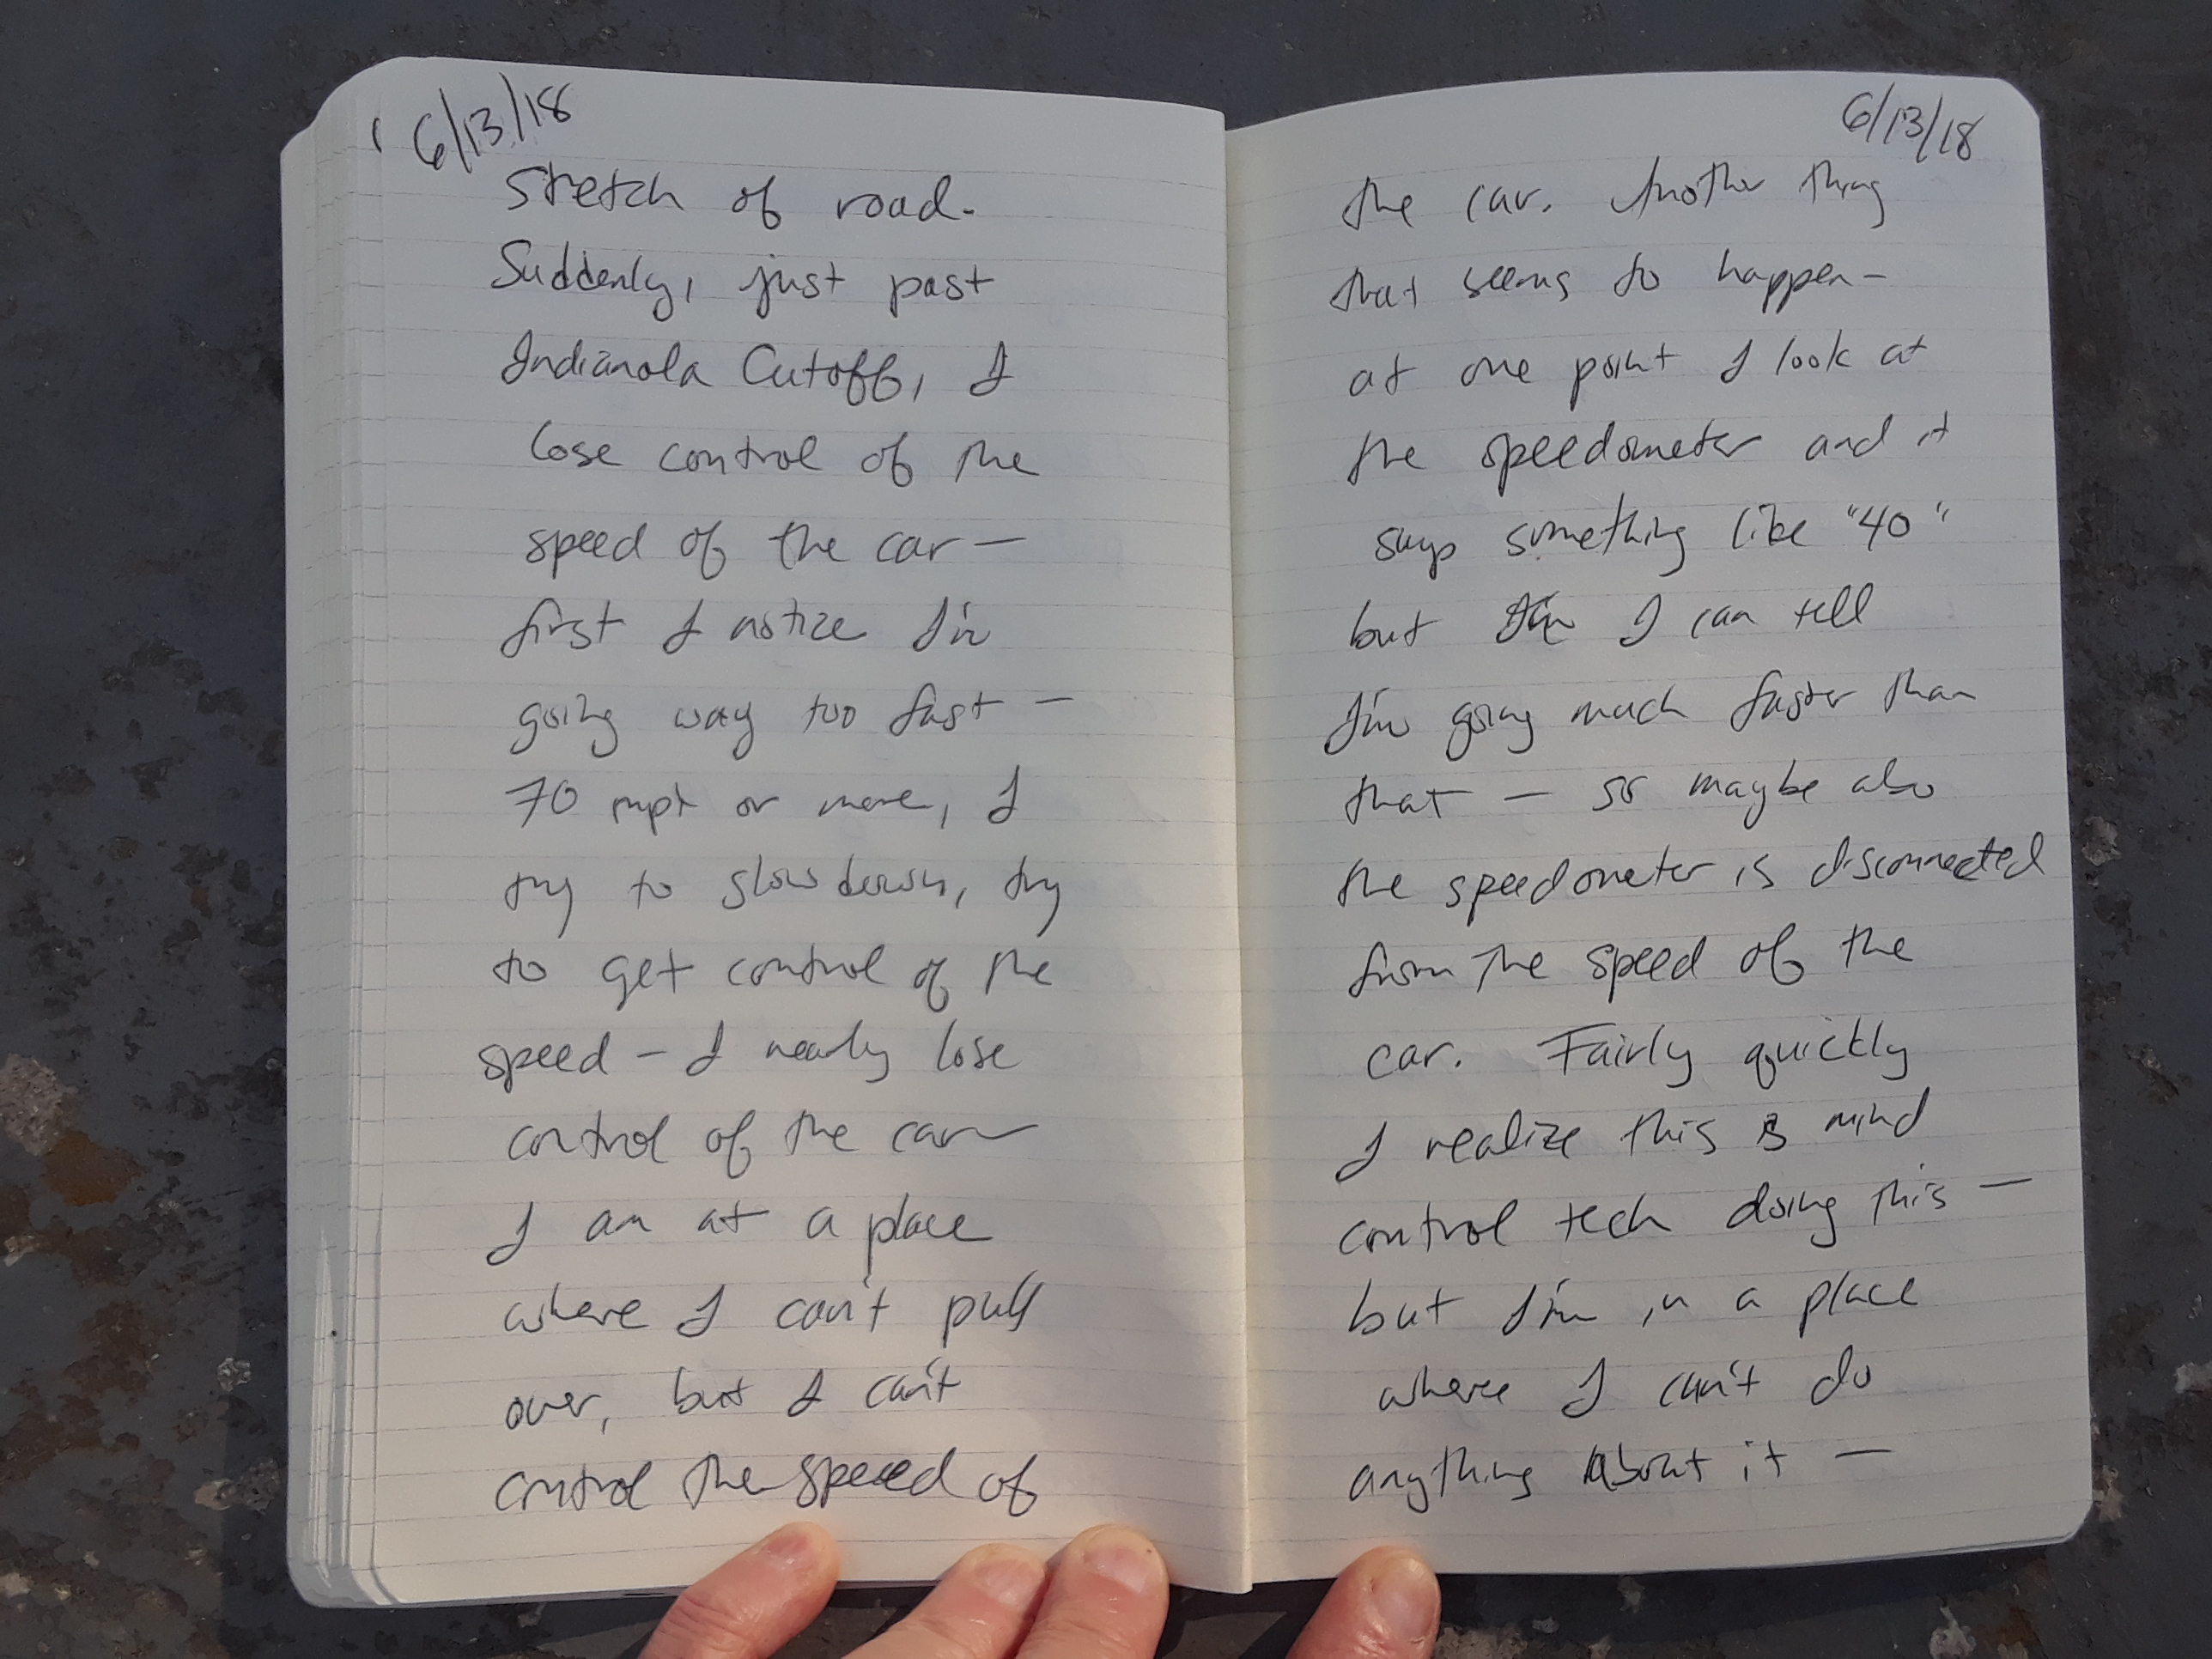 6/13/18
stretch of road.
Suddenly, just past
Indianola Cutoff, I
lose control of the
speed of the car —
first I notice I'm
going way too fast —
70 mph or more, I
try to slow down, try
to get control of the
speed — I nearly lose
control of the car —
I am at a place
where I can't pull
over, but I can't
control the speed of
6/13/18
the car. Another thing
that seems to happen —
at one point I look at
the speedometer and it
says something like "40"
but I can tell
I'm going much faster than
that — so maybe also
the speedometer is disconnected
from the speed of the
car. Fairly quickly
I realize this is mind
control tech doing this —
but I'm in a place
where I can't do
anything about it —